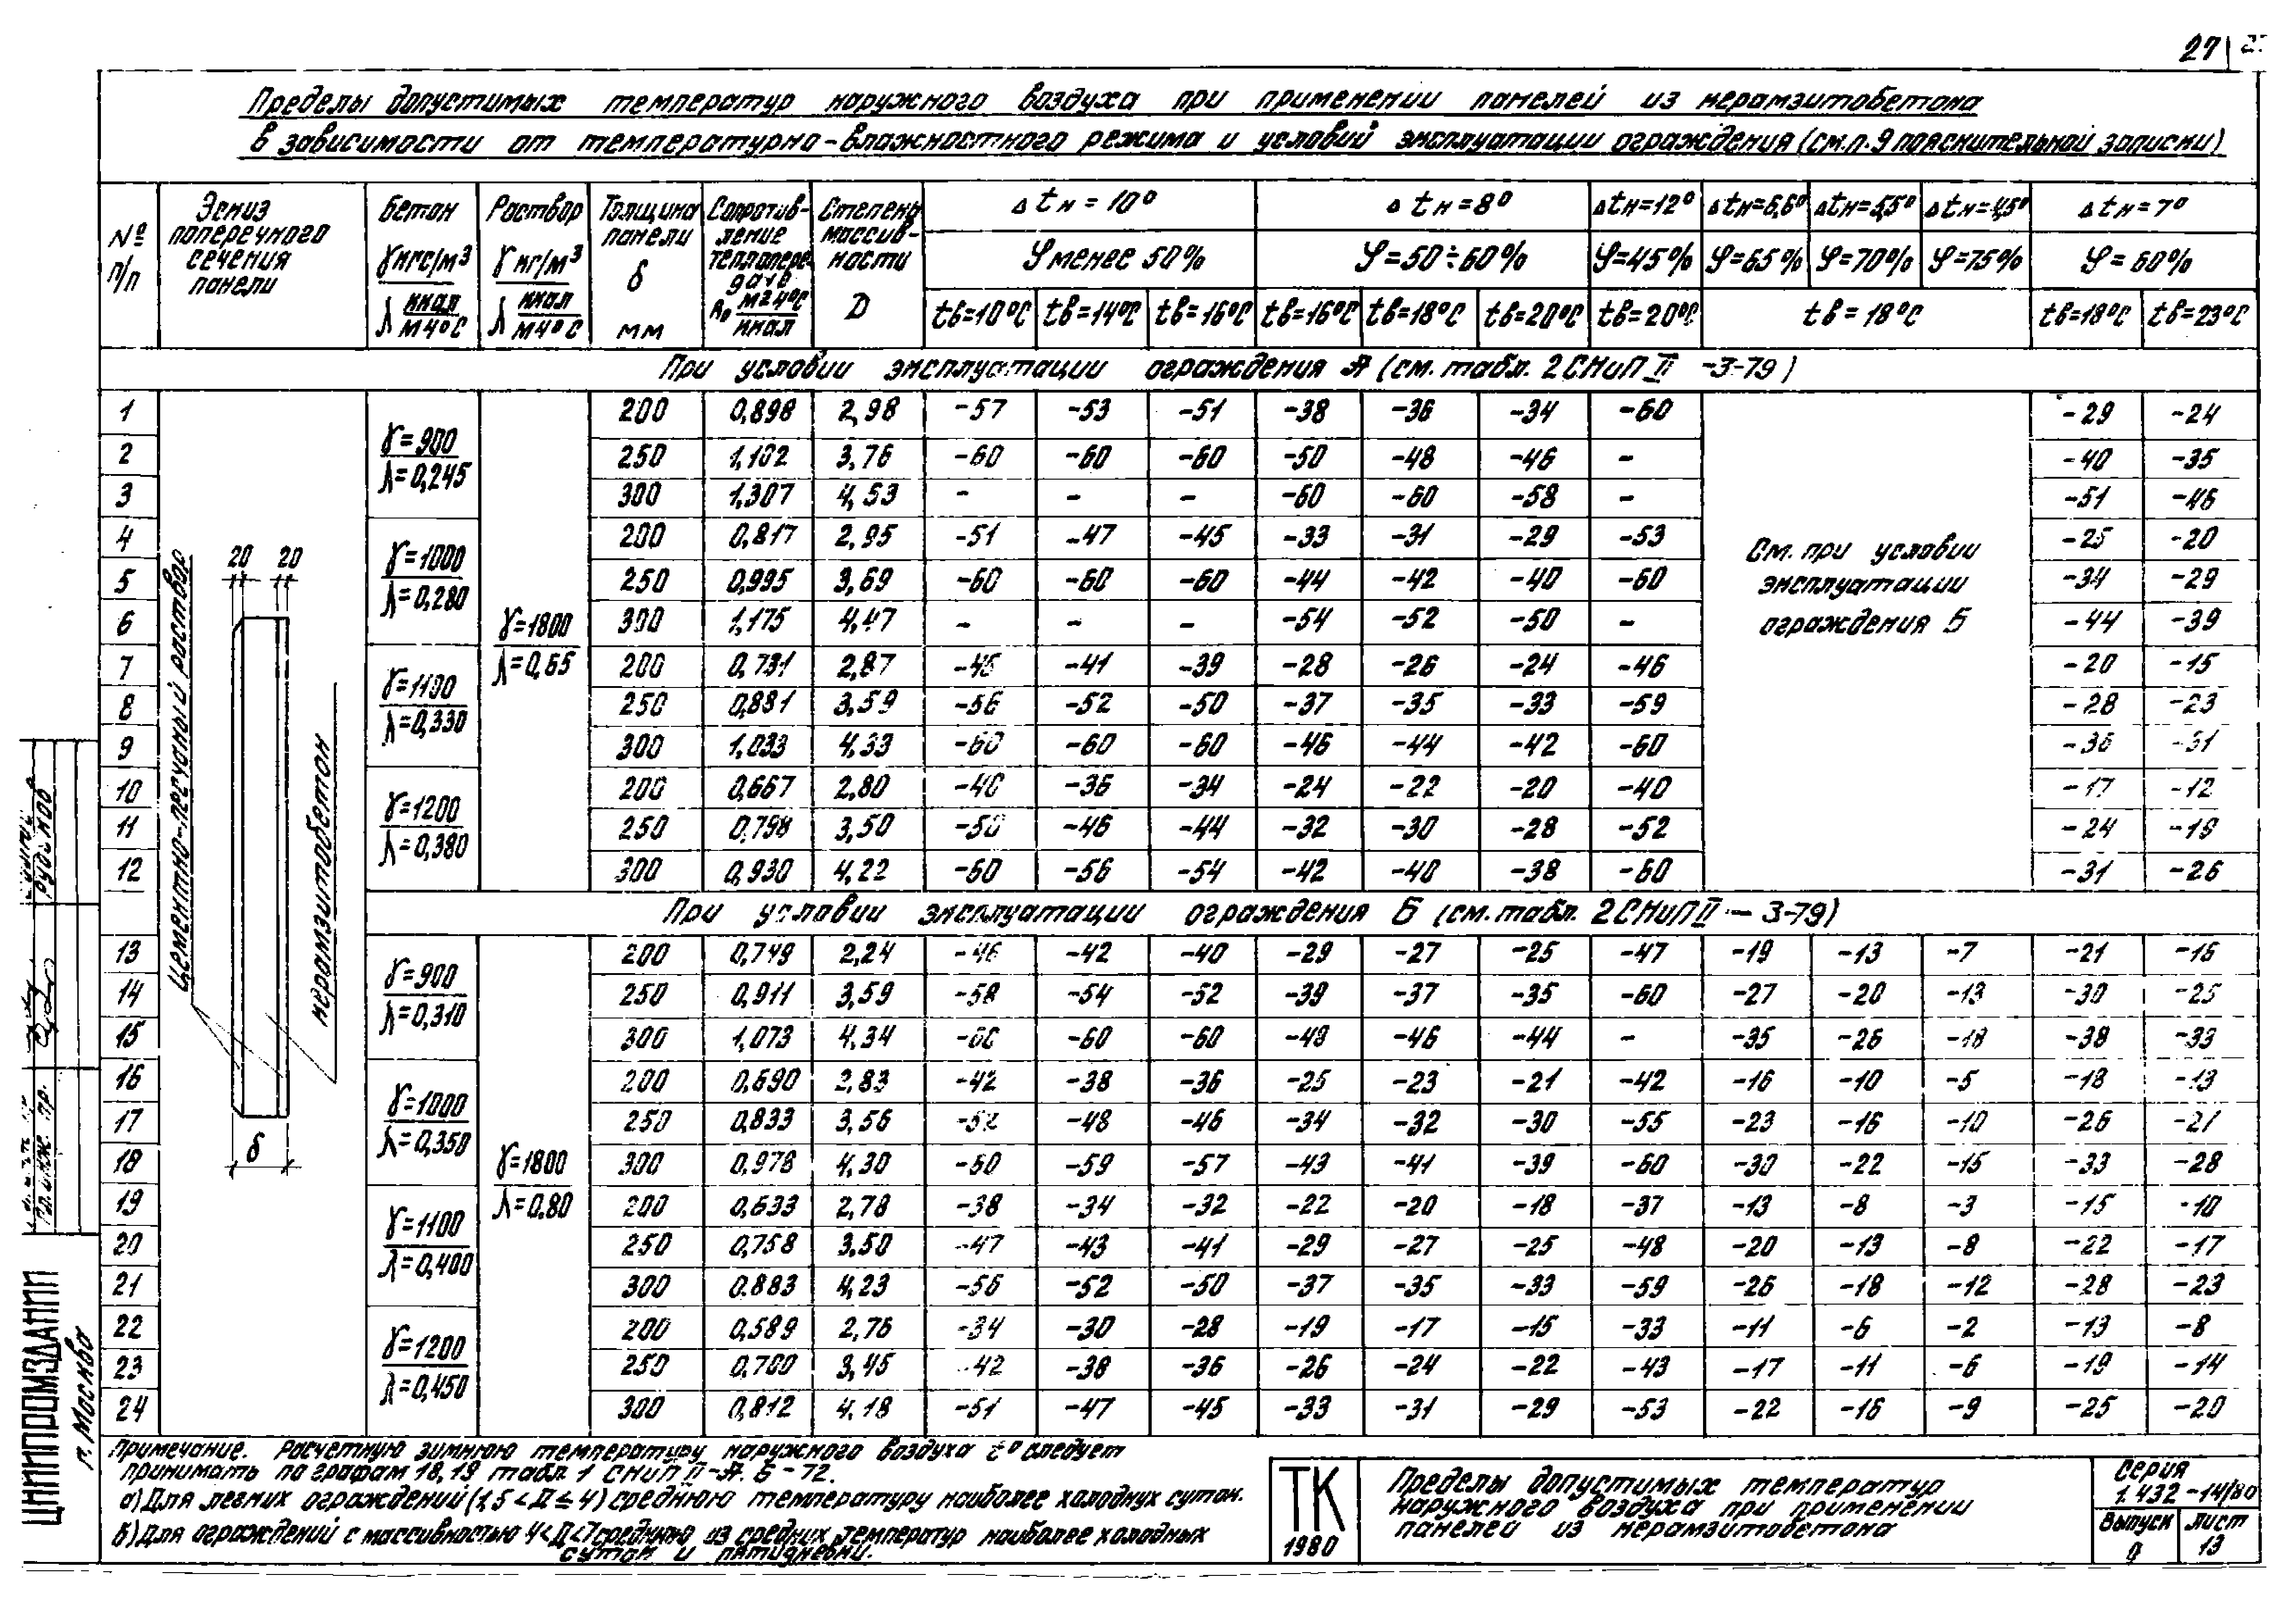 27
Пределы допустимых температур наружного воздуха при применении панелей из керамзитобетона
в зависимости от температурно-влажностного режима и условий эксплуатации ограждения (см.п.9 пояснительной записки)
№ п/п | Эскиз поперечного сечения панели | Бетон γ кгс/м³ λ ккал/м ч °С | Раствор γ кг/м³ λ ккал/м ч °С | Толщина панели δ мм | Сопротивление теплопередаче R₀ м² ч °С/ккал | Степень массивности D | Δtн=10° | Δtн=8° | Δtн=12° | Δtн=6,6° | Δtн=5,5° | Δtн=4,5° | Δtн=7°
φ менее 50% | φ=50÷60% | φ=45% | φ=65% | φ=70% | φ=75% | φ=60%
tв=10°С | tв=14°С | tв=16°С | tв=16°С | tв=18°С | tв=20°С | tв=20°С | tв=18°С | tв=18°С | tв=23°С
При условии эксплуатации ограждения А (см. табл. 2 СНиП II -3-79)
γ=1800
λ=0,65
γ=900
λ=0,245
1 200 0,898 2,98 -57 -53 -51 -38 -36 -34 -60 -29 -24
2 250 1,102 3,76 -60 -60 -60 -50 -48 -46 - -40 -35
3 300 1,307 4,53 - - - -60 -60 -58 - -51 -46
γ=1000
λ=0,280
4 200 0,817 2,95 -51 -47 -45 -33 -31 -29 -53 -25 -20
5 250 0,995 3,69 -60 -60 -60 -44 -42 -40 -60 -34 -29
6 300 1,175 4,47 - - - -54 -52 -50 - -44 -39
γ=1100
λ=0,330
7 200 0,731 2,87 -45 -41 -39 -28 -26 -24 -46 -20 -15
8 250 0,881 3,59 -56 -52 -50 -37 -35 -33 -59 -28 -23
9 300 1,033 4,33 -60 -60 -60 -46 -44 -42 -60 -36 -31
γ=1200
λ=0,380
10 200 0,667 2,80 -40 -36 -34 -24 -22 -20 -40 -17 -12
11 250 0,798 3,50 -50 -46 -44 -32 -30 -28 -52 -24 -19
12 300 0,930 4,22 -60 -56 -54 -42 -40 -38 -60 -31 -26
См. при условии
эксплуатации
ограждения Б
При условии эксплуатации ограждения Б (см. табл. 2 СНиП II - 3-79)
γ=1800
λ=0,80
γ=900
λ=0,310
13 200 0,749 2,24 -46 -42 -40 -29 -27 -25 -47 -19 -13 -7 -21 -16
14 250 0,911 3,59 -58 -54 -52 -39 -37 -35 -60 -27 -20 -13 -30 -25
15 300 1,073 4,34 -60 -60 -60 -48 -46 -44 - -35 -26 -18 -38 -33
γ=1000
λ=0,350
16 200 0,690 2,83 -42 -38 -36 -25 -23 -21 -42 -16 -10 -5 -18 -13
17 250 0,833 3,56 -52 -48 -46 -34 -32 -30 -55 -23 -16 -10 -26 -21
18 300 0,976 4,30 -60 -59 -57 -43 -41 -39 -60 -30 -22 -15 -33 -28
γ=1100
λ=0,400
19 200 0,633 2,78 -38 -34 -32 -22 -20 -18 -37 -13 -8 -3 -15 -10
20 250 0,758 3,50 -47 -43 -41 -29 -27 -25 -48 -20 -13 -8 -22 -17
21 300 0,883 4,23 -56 -52 -50 -37 -35 -33 -59 -26 -18 -12 -28 -23
γ=1200
λ=0,450
22 200 0,589 2,76 -34 -30 -28 -19 -17 -15 -33 -11 -6 -2 -13 -8
23 250 0,700 3,45 -42 -38 -36 -26 -24 -22 -43 -17 -11 -6 -19 -14
24 300 0,812 4,18 -51 -47 -45 -33 -31 -29 -53 -22 -16 -9 -25 -20
20 20
Цементно-песчаный раствор
керамзитобетон
δ
Примечание. Расчетную зимнюю температуру наружного воздуха t° следует
принимать по графам 18,19 табл 1 СНиП II-А. 6 - 72.
а) Для легких ограждений (1,5 < Д ≤ 4) среднюю температуру наиболее холодных суток.
б) Для ограждений с массивностью 4<Д<7 среднюю из средних температур наиболее холодных
суток и пятидневки.
ТК
1980
Пределы допустимых температур
наружного воздуха при применении
панелей из керамзитобетона
Серия
1.432 -14/80
Выпуск
0
Лист
13
ЦНИИПРОМЗДАНИЙ
г. Москва